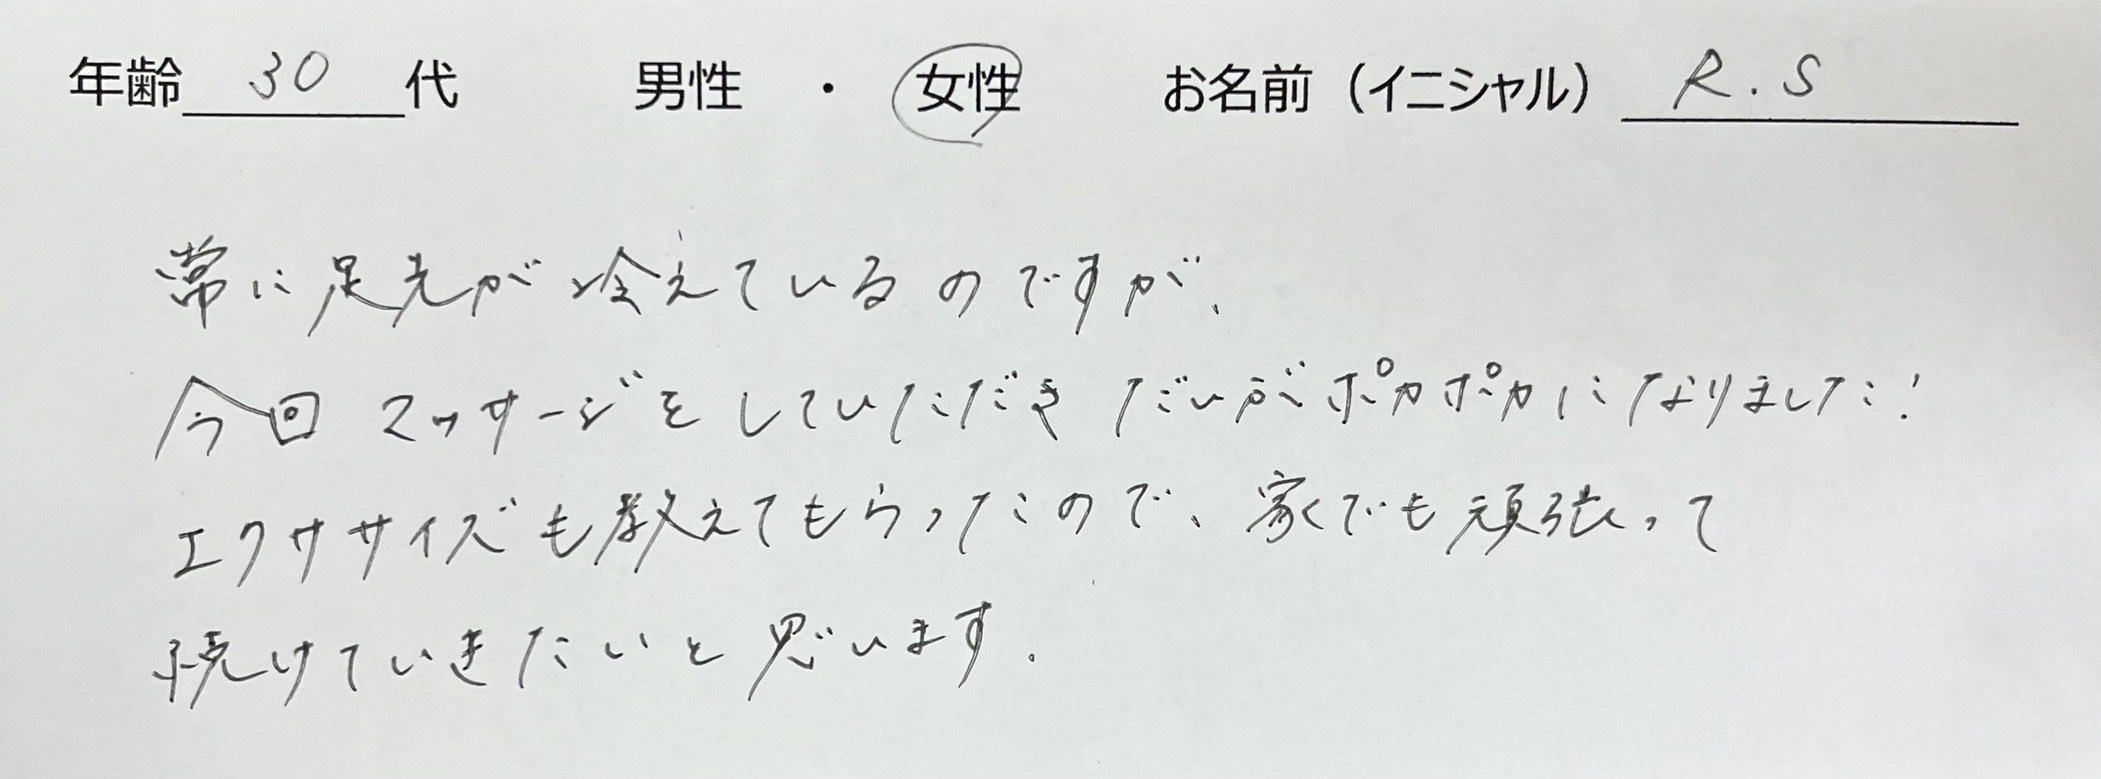 年齢 30 代 男性 ・ 女性 お名前（イニシャル） R.S
常に足先が冷えているのですが、
今回 マッサージをしていただき だいぶポカポカになりました!
エクササイズも教えてもらったので、家でも頑張って
続けていきたいと思います.